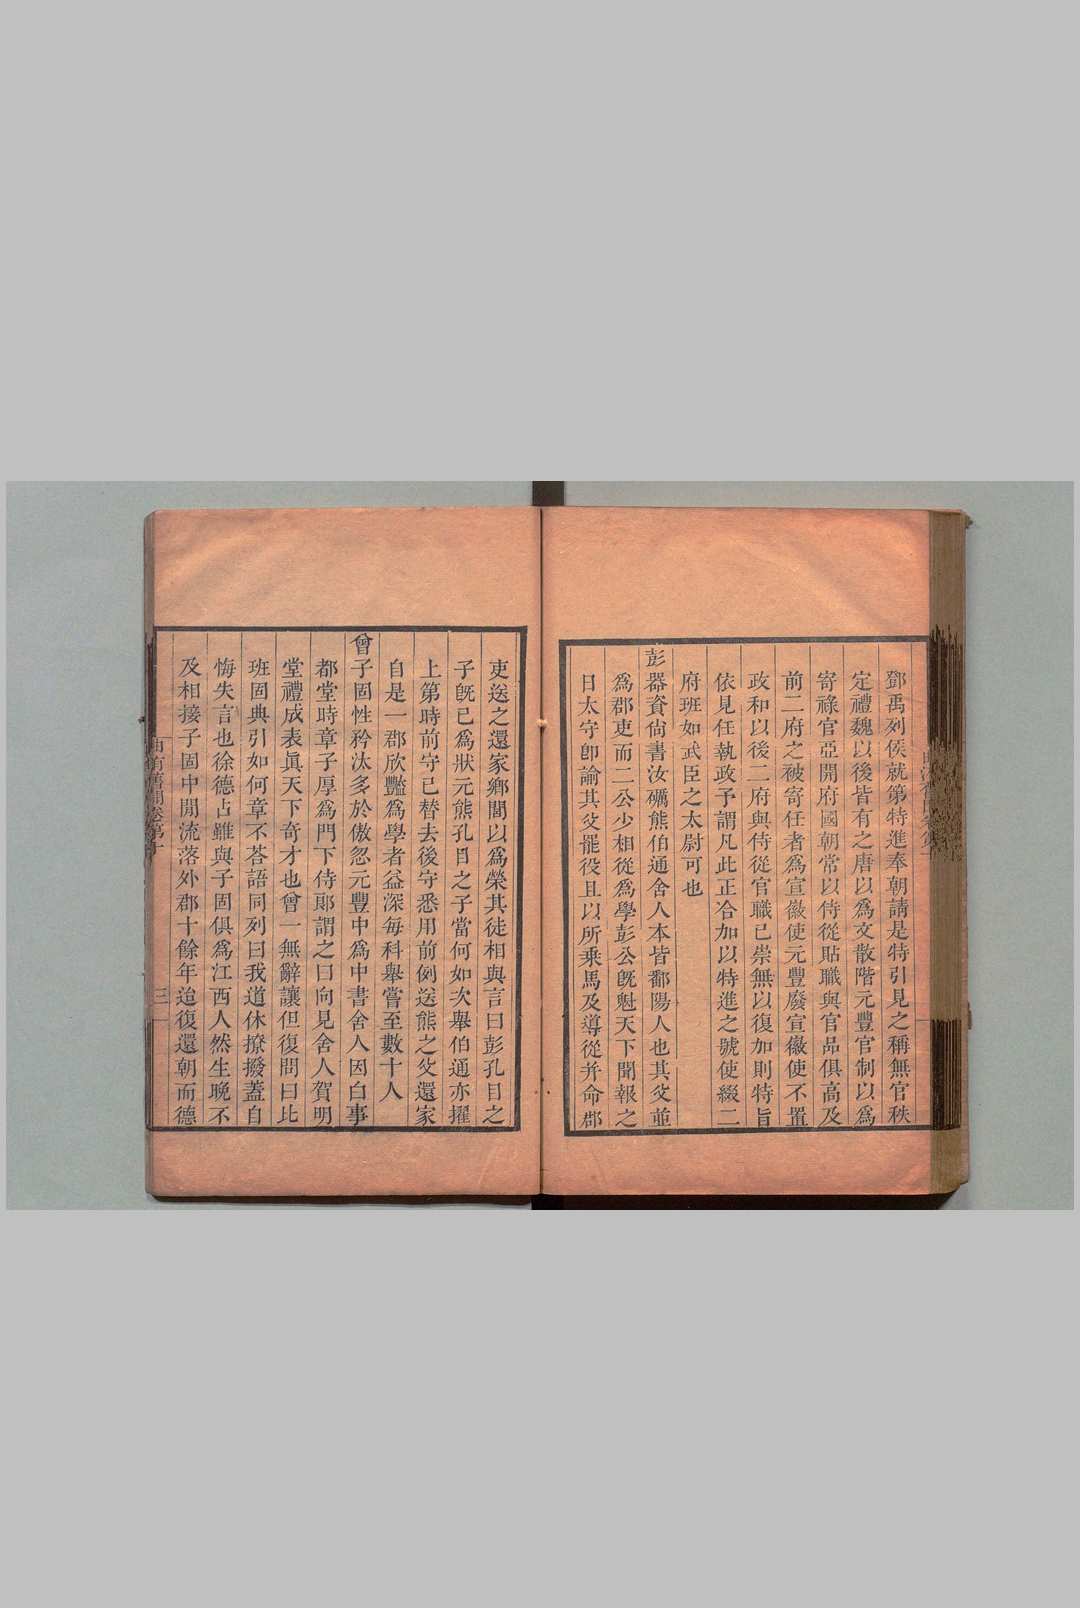 鄧禹列侯就第特進奉朝請是特引見之稱無官秩
定禮魏以後皆有之唐以爲文散階元豐官制以爲
寄祿官亞開府國朝常以侍從貼職與官品俱高及
前二府之被寄任者爲宣徽使元豐廢宣徽使不置
政和以後二府與侍從官職已崇無以復加則特旨
依見任執政予謂凡此正合加以特進之號使綴二
府班如武臣之太尉可也
彭器資尙書汝礪熊伯通舍人本皆鄱陽人也其父並
爲郡吏而二公少相從爲學彭公旣魁天下聞報之
日太守卽諭其父罷役且以所乘馬及導從并命郡
吏送之還家鄉閭以爲榮其徒相與言曰彭孔目之
子旣已爲狀元熊孔目之子當何如次舉伯通亦擢
上第時前守已替去後守悉用前例送熊之父還家
自是一郡欣豔爲學者益深每科舉嘗至數十人
曾子固性矜汰多於傲忽元豐中爲中書舍人因白事
都堂時章子厚爲門下侍郞謂之曰向見舍人賀明
堂禮成表眞天下奇才也曾一無辭讓但復問曰比
班固典引如何章不荅語同列曰我道休撩撥蓋自
悔失言也徐德占雖與子固俱爲江西人然生晚不
及相接子固中閒流落外郡十餘年迨復還朝而德
曲洧舊聞卷第十
三